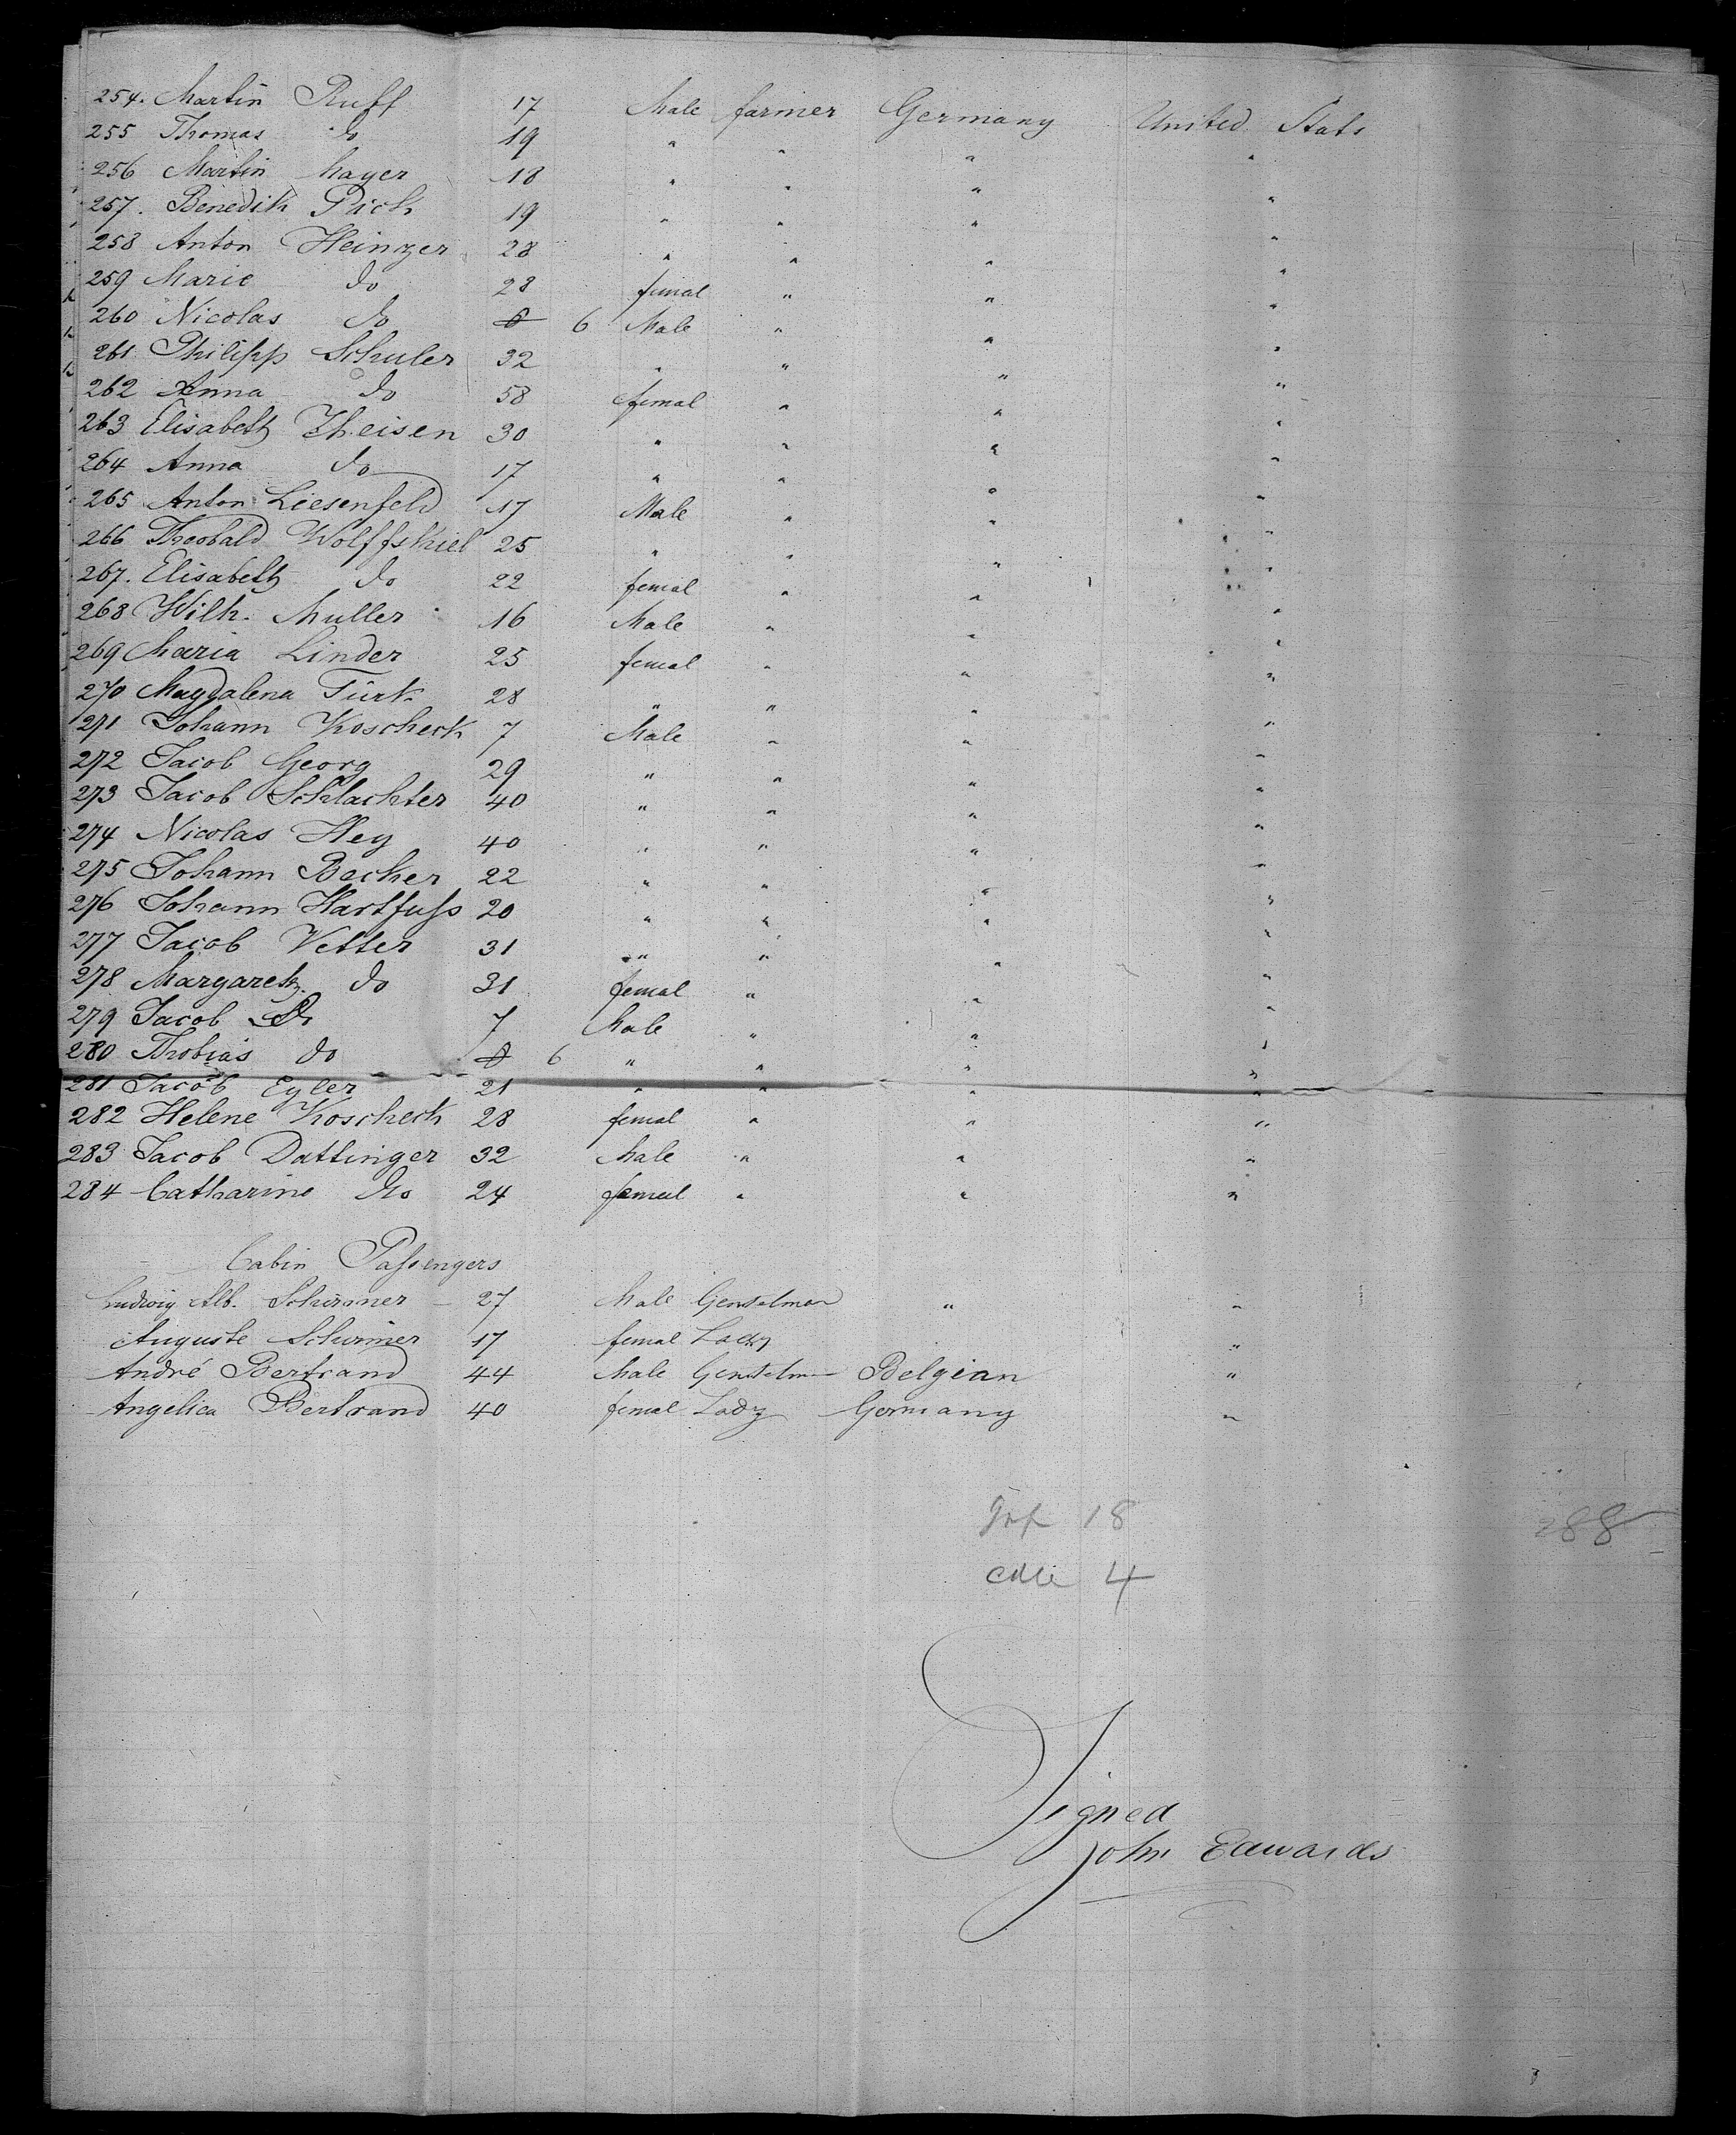 254. Martin Ruff 17 Male farmer Germany United Stats
255 Thomas do 19 " " " "
256 Martin Mayer 18 " " " "
257. Benedikt Pick 19 " " " "
258 Anton Heinzer 28 " " " "
259 Marie do 28 femal " " "
260 Nicolas do 6 Male " " "
261 Philipp Schuler 32 " " " "
262 Anna do 58 femal " " "
263 Elisabeth Theisen 30 " " " "
264 Anna do 17 " " " "
265 Anton Liesenfeld 17 Male " " "
266 Theobald Wolffskiel 25 " " " "
267. Elisabeth do 22 femal " " "
268 Wilh. Muller 16 Male " " "
269 Maria Linder 25 femal " " "
270 Magdalena Türk 28 " " " "
271 Johann Koscheck 7 Male " " "
272 Jacob Georg 29 " " " "
273 Jacob Schlachter 40 " " " "
274 Nicolas Hey 40 " " " "
275 Johann Becker 22 " " " "
276 Johann Hartfuss 20 " " " "
277 Jacob Vetter 31 " " " "
278 Margareth. do 31 femal " " "
279 Jacob Do 7 Male " " "
280 Thobias do 6 " " " "
281 Jacob Eyler 21 " " " "
282 Helene Koscheck 28 femal " " "
283 Jacob Dattinger 32 Male " " "
284 Catharine do 24 femal " " "
Cabin Passengers
Ludwig Alb. Schirmer - 27 Male Gentelman " "
Auguste Schirmer 17 femal Lady "
André Bertrand 44 Male Gentelm Belgian "
Angelica Bertrand 40 femal Lady Germany "
18 288
4
Signed
John Edwards